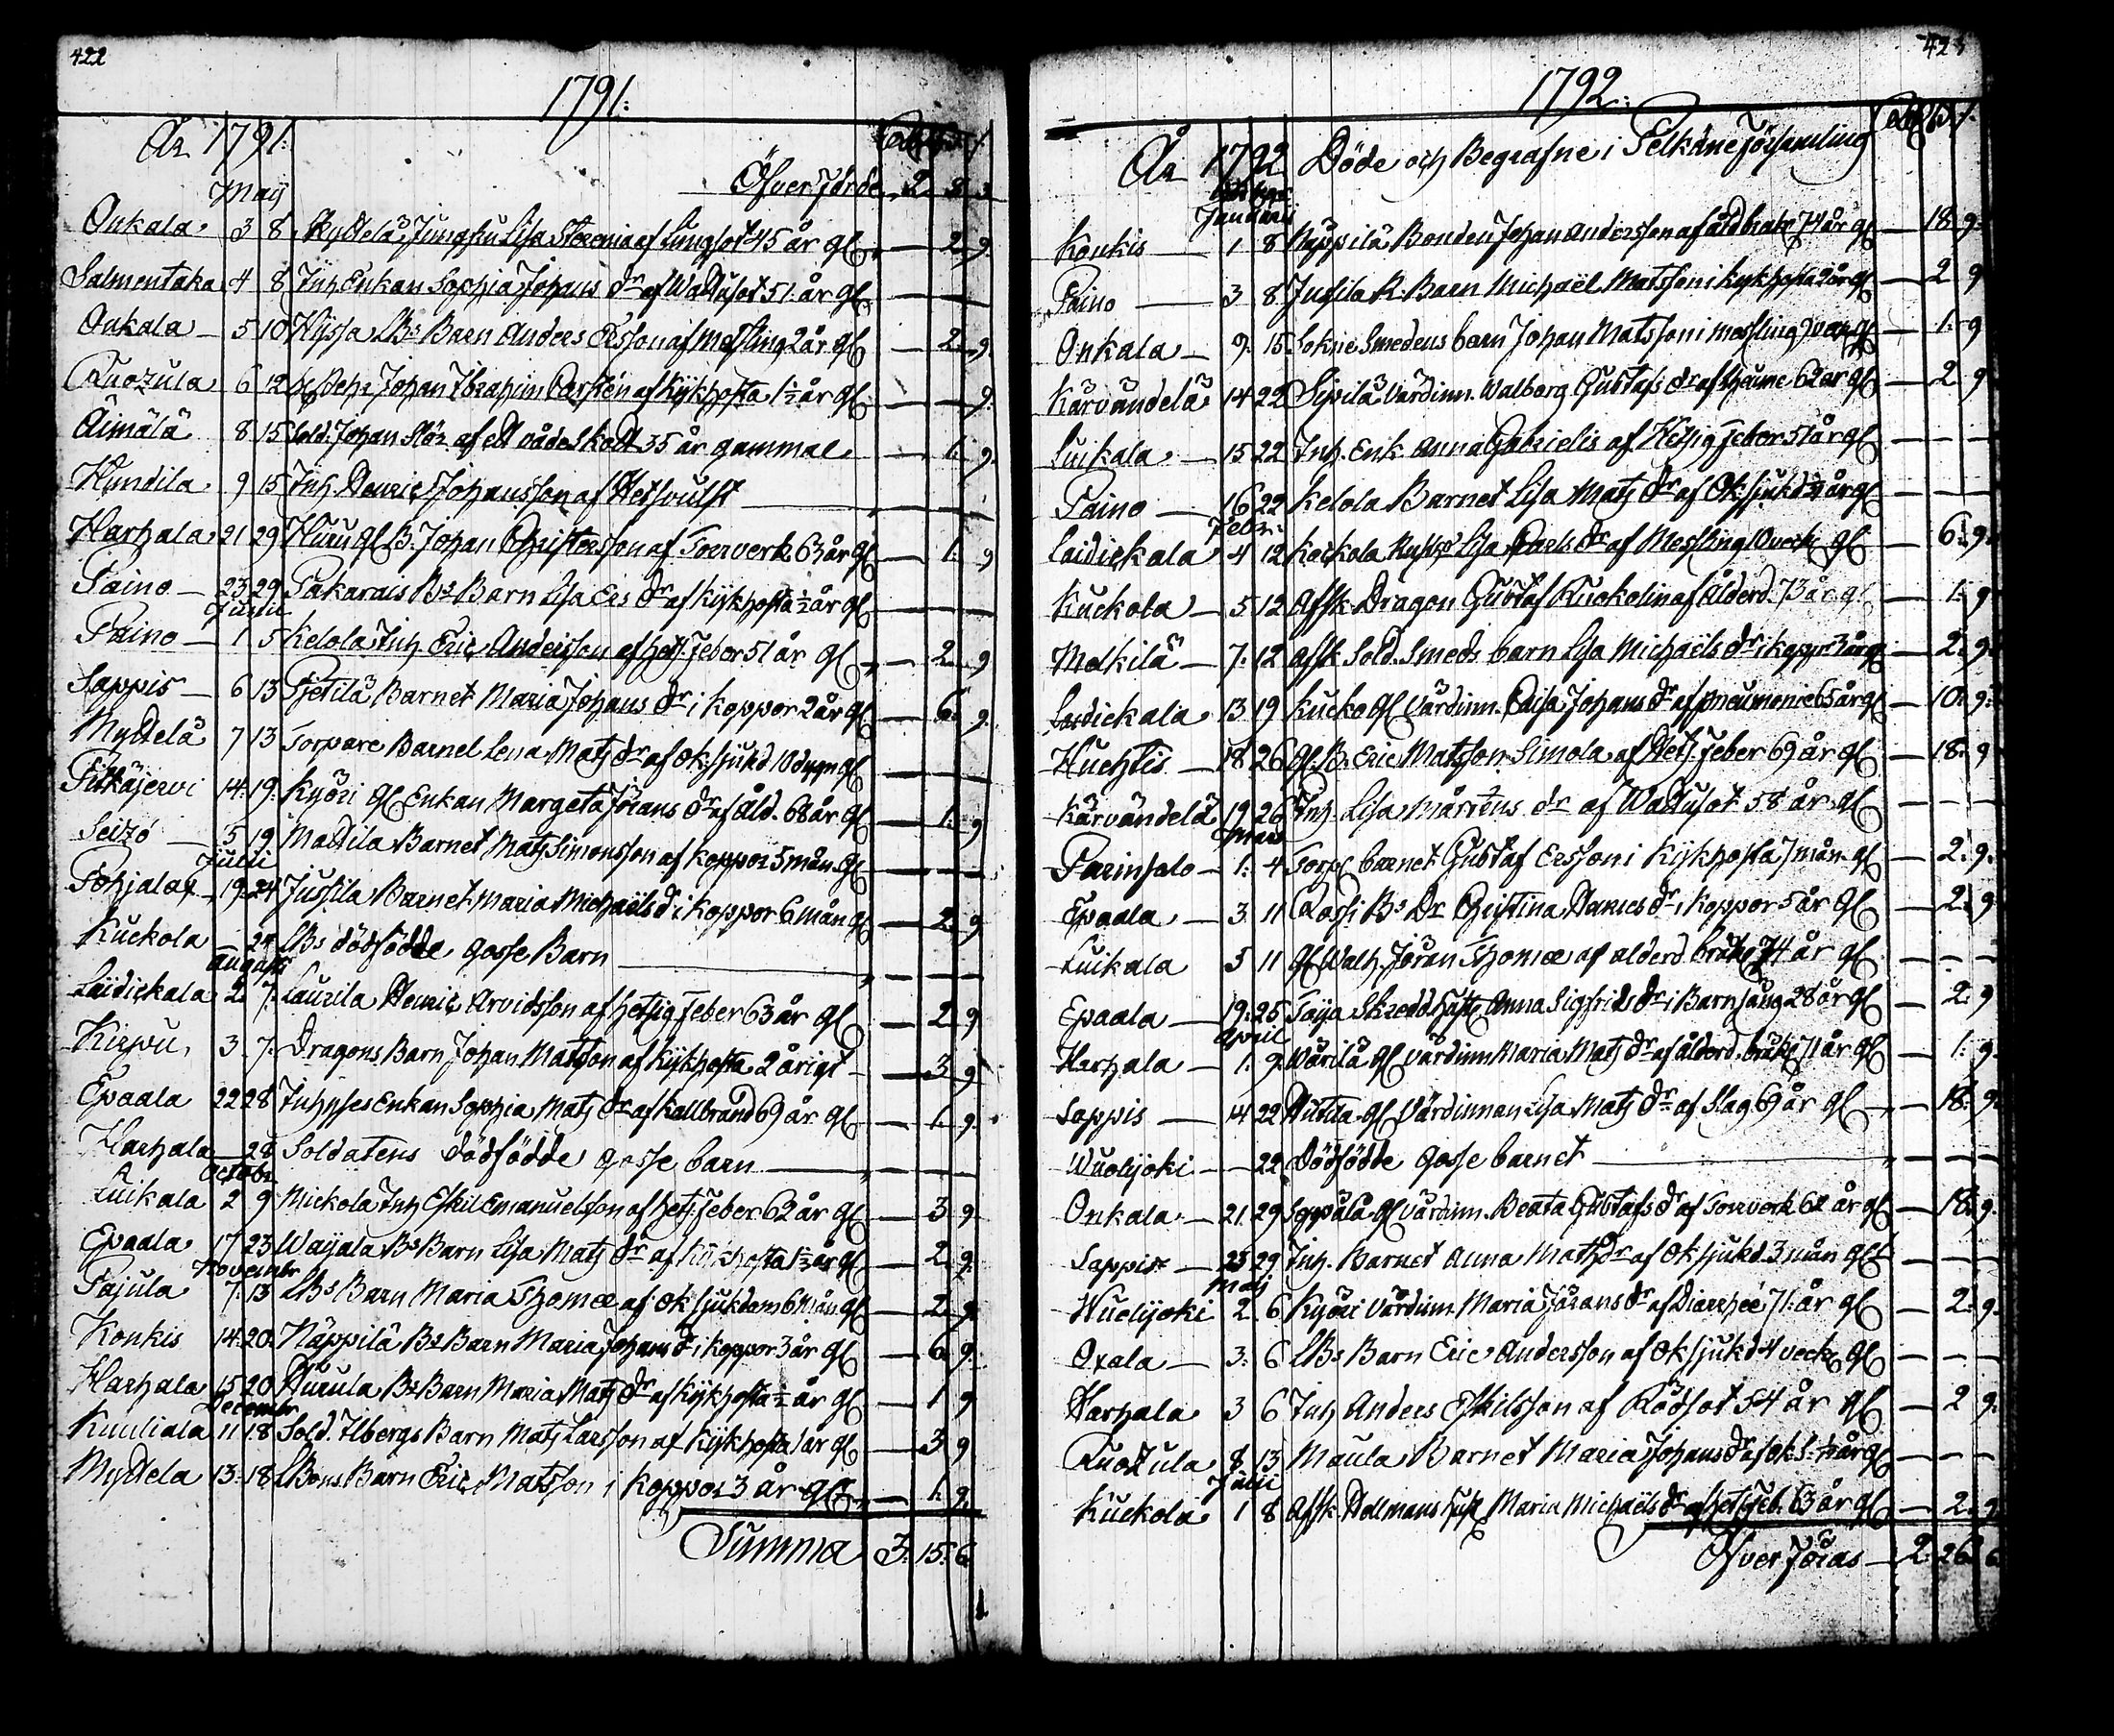 422
1791:
År 1791:
Öfverförde 2. 8. 3
Maij
Onkala 3 8 Jungfru Lisa af Lungsot 45 år gl. — 2. 9
Salmentaka 4 8 Inh. Enkan Sophia Johans dr af Wattusot 51 år gl.
Onkala 5 10 Hyssa Bs Barn Anders Ersson af Messling 2 år gl — 2. 9
12 Johan Ibrahim af Kykhosta 1½ år gl — 9.
Äimälä 8 15 Sold. Johan Stör af ett vådeskott 35 år gammal — 1. 9
Hundila 9 15 Inh. Henric Johansson af Hetsvulst
Harhala 21 29 Huru gl B. Johan Christersson af Torrverk 63 år gl — 1. 9
Paino 23 29 Pakarais Bs Barn Lisa Ers dr af Kykhosta ½ år gl
Junii
Paino 1 5 Kelola Inh. Eric Andersson af hets. feber 51 år gl — 2. 9
Sappis 6 13 Pietilä Barnet Maria Johans dr i Koppor 2 år gl — 6. 9
Myttelä 7 13 Torpare Barnet Lena Mats dr af ok. sjukd. 10 dygn gl
Pitkäjervi 14. 19. Kyöri gl Enkan Margeta Jörans dr af åld. 68 år gl — 1. 9
Seitzö 15 19 Mattila Barnet Mats Simonsson af koppor 5 mån. gl
Julii
Pohjala 19. 24 Jussila Barnet Maria Michaëls dr i koppor 6 mån gl — 2. 9
Kuckola — 24 Bs dödfödde gosse Barn
Augusti
Laidickala 2. 7. Laurila Henric Arvidsson af hetsig feber 63 år gl — 2. 9
Kirpu 3. 7. Dragons Barn Johan Matsson af Kykhosta 2 årigt — 3 9
Epaala 22 28 Inhyses Enkan Sophia Mats dr af Kallbrand 69 år gl — 1. 9.
Harhala — 28 Soldatens dödfödde gosse barn
Octobr
Luikala 2 9 Mickola Inh. Eskil Emanuelsson af hets. feber 62 år gl — 3. 9.
Epaala 17 23 Wayala Bs Barn Lisa Mats dr af Kykhosta 1½ år gl — 2. 9.
Novembr
Pajula 7. 13 Bs Barn Maria Thomæ af ok. sjukdom 6 mån gl — 2. 9
Konkis 14. 20. Näppilä Bs Barn Maria Johans dr i koppor 3 år gl — 6. 9.
Harhala 15 20 Bs Barn Maria Mats dr af Kykhosta ½ år gl — 1 9
Decembr
Kuuliala 11 18 Sold. Ilbergs Barn Mats Larsson af Kykhosta 1 år gl — 3 9
Myttela 13. 18 Barn Eric Matsson i koppor 3 år gl — 1. 9
Summa 3. 15. 6
1792:
År 1792 Döde och Begrafne i Pelkäne Församling
Januarii
Konkis 1 8 Näppilä Bonden Johan Andersson af ålderbråk 74 år gl — 18. 9.
Paino 3 8 Jussila R. Barn Michaël Matsson i kykhosta 2 år gl — 2 9
Onkala 9. 15 Sokne Smedens barn Johan Matsson i messling — 1. 9
Kärvändelä 14 22 Sipilä Värdinn. Walborg Gustafs dr 62 år gl — 2 9
Luikala 15 22 Inh. Enk. Anna Gabrielis af Hetsig feber 51 år gl
Paino 16 22 Kelola Barnet Lisa Mats dr af Ok. sjukd. år gl
Febr.
Laidickala 4 12 Kockola Lisa dr af Messling 10 veck. gl — 6. 9.
Kuckola 5 12 Afsk. Dragon Gustaf af Ålderd. 73 år gl — 1. 9
Melkilä 7. 12 Afsk. Sold. Smeds barn Lisa Michaëls dr i koppr 3 år gl — 2. 9.
Laidickala 13. 19 Kucko gl Värdinn. Caisa Johans dr af pneumonie 65 år gl — 10. 9.
Huchtis 18 26 gl. B. Eric Matsson Simola af Hets. feber 69 år gl — 18. 9
Kärväntelä 19. 26 Inh. Lisa Mårtens dr af Wattusot 58 år gl
Mars
Parinsalo 1. 4 Torp. barnet Gustaf Ersson i Kykhosta 7 mån. gl — 2. 9.
Epaala 3. 11 Rossi Bs Dr Christina Henrics dr i koppor 5 år gl — 2. 9
Luikala 5 11 gl Walh. Jöran Thomæ af alderd. bråk 74 år gl
Epaala 19. 25 Taija Anna Sigfrids dr i Barnsäng 28 år gl — 2. 9
April
Harhala 1. 9. Wärilä gl värdinn Maria Mats dr af ålderd. bråk 71 år gl — 1. 9.
Sappis 14 22 gl Värdinnan Lisa Mats dr af Slag 69 år gl — 18. 9.
Wuolijoki — 22 Dödfödde gosse barnet
Onkala 21. 29 Seppälä gl värdinn. Beata Gustafs dr af Torrverk 62 år gl — 18. 9.
Sappis 23 29 Inh. Barnet Anna Mats dr af ok sjukd. 3 mån gl
Maij
Wuolijoki 2. 6 Kyöri värdinn. Maria Jörans dr af Diarrhée 71 år gl — 2. 9.
Oxala 3. 6 Bs Barn Eric Andersson af ok sjukd 4 veck gl
Harhala 3 6 Inh Anders Eskilsson af Rödsot 54 år gl — 2 9.
8 13 Maula Barnet Maria Johans dr af ok. s. ½ år gl
Junii
Kuckola 1 8 Afsk. Maria Michaëls dr af hets. feb. 63 år gl — 2. 9
Öfverföras 2. 26. 6